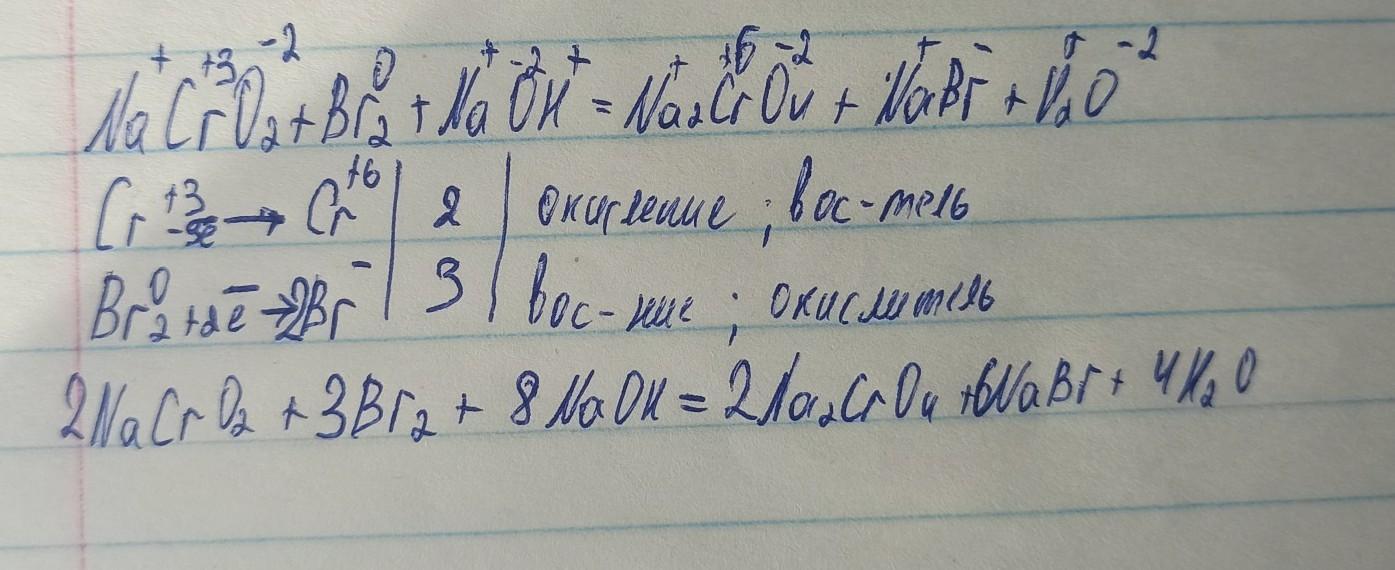 Na⁺Cr⁺³O₂⁻² + Br₂⁰ + Na⁺O⁻²H⁺ = Na₂⁺Cr⁺⁶O₄⁻² + Na⁺Br⁻ + H₂⁺O⁻²
Cr⁺³ -3e → Cr⁺⁶ | 2 | окисление ; вос-тель
Br₂⁰ + 2e⁻ → 2Br⁻ | 3 | вос-ние ; окислитель
2NaCrO₂ + 3Br₂ + 8NaOH = 2Na₂CrO₄ + 6NaBr + 4H₂O